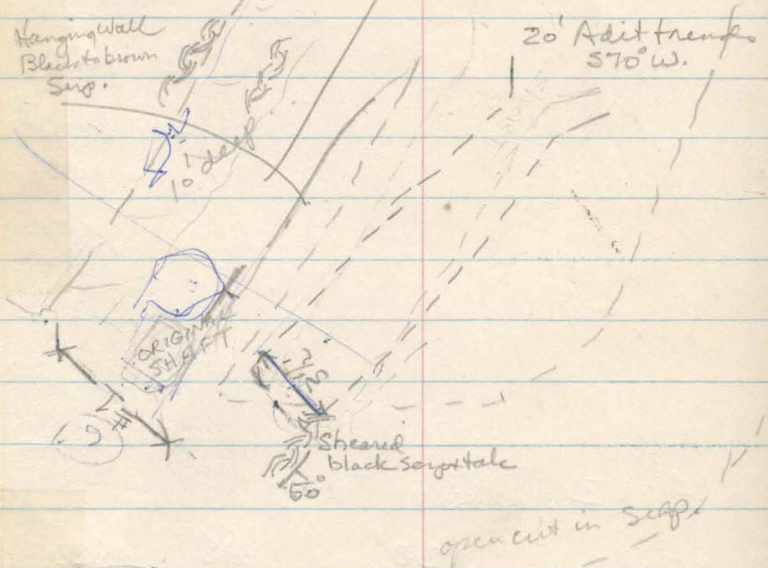 Hanging Wall
Black to brown
Serp.
20' Adit trends
S70°W.
10' deep
ORIGINAL
SHAFT
#1
#2
Sheared
black Serp + talc
50°
open cut in Serp.